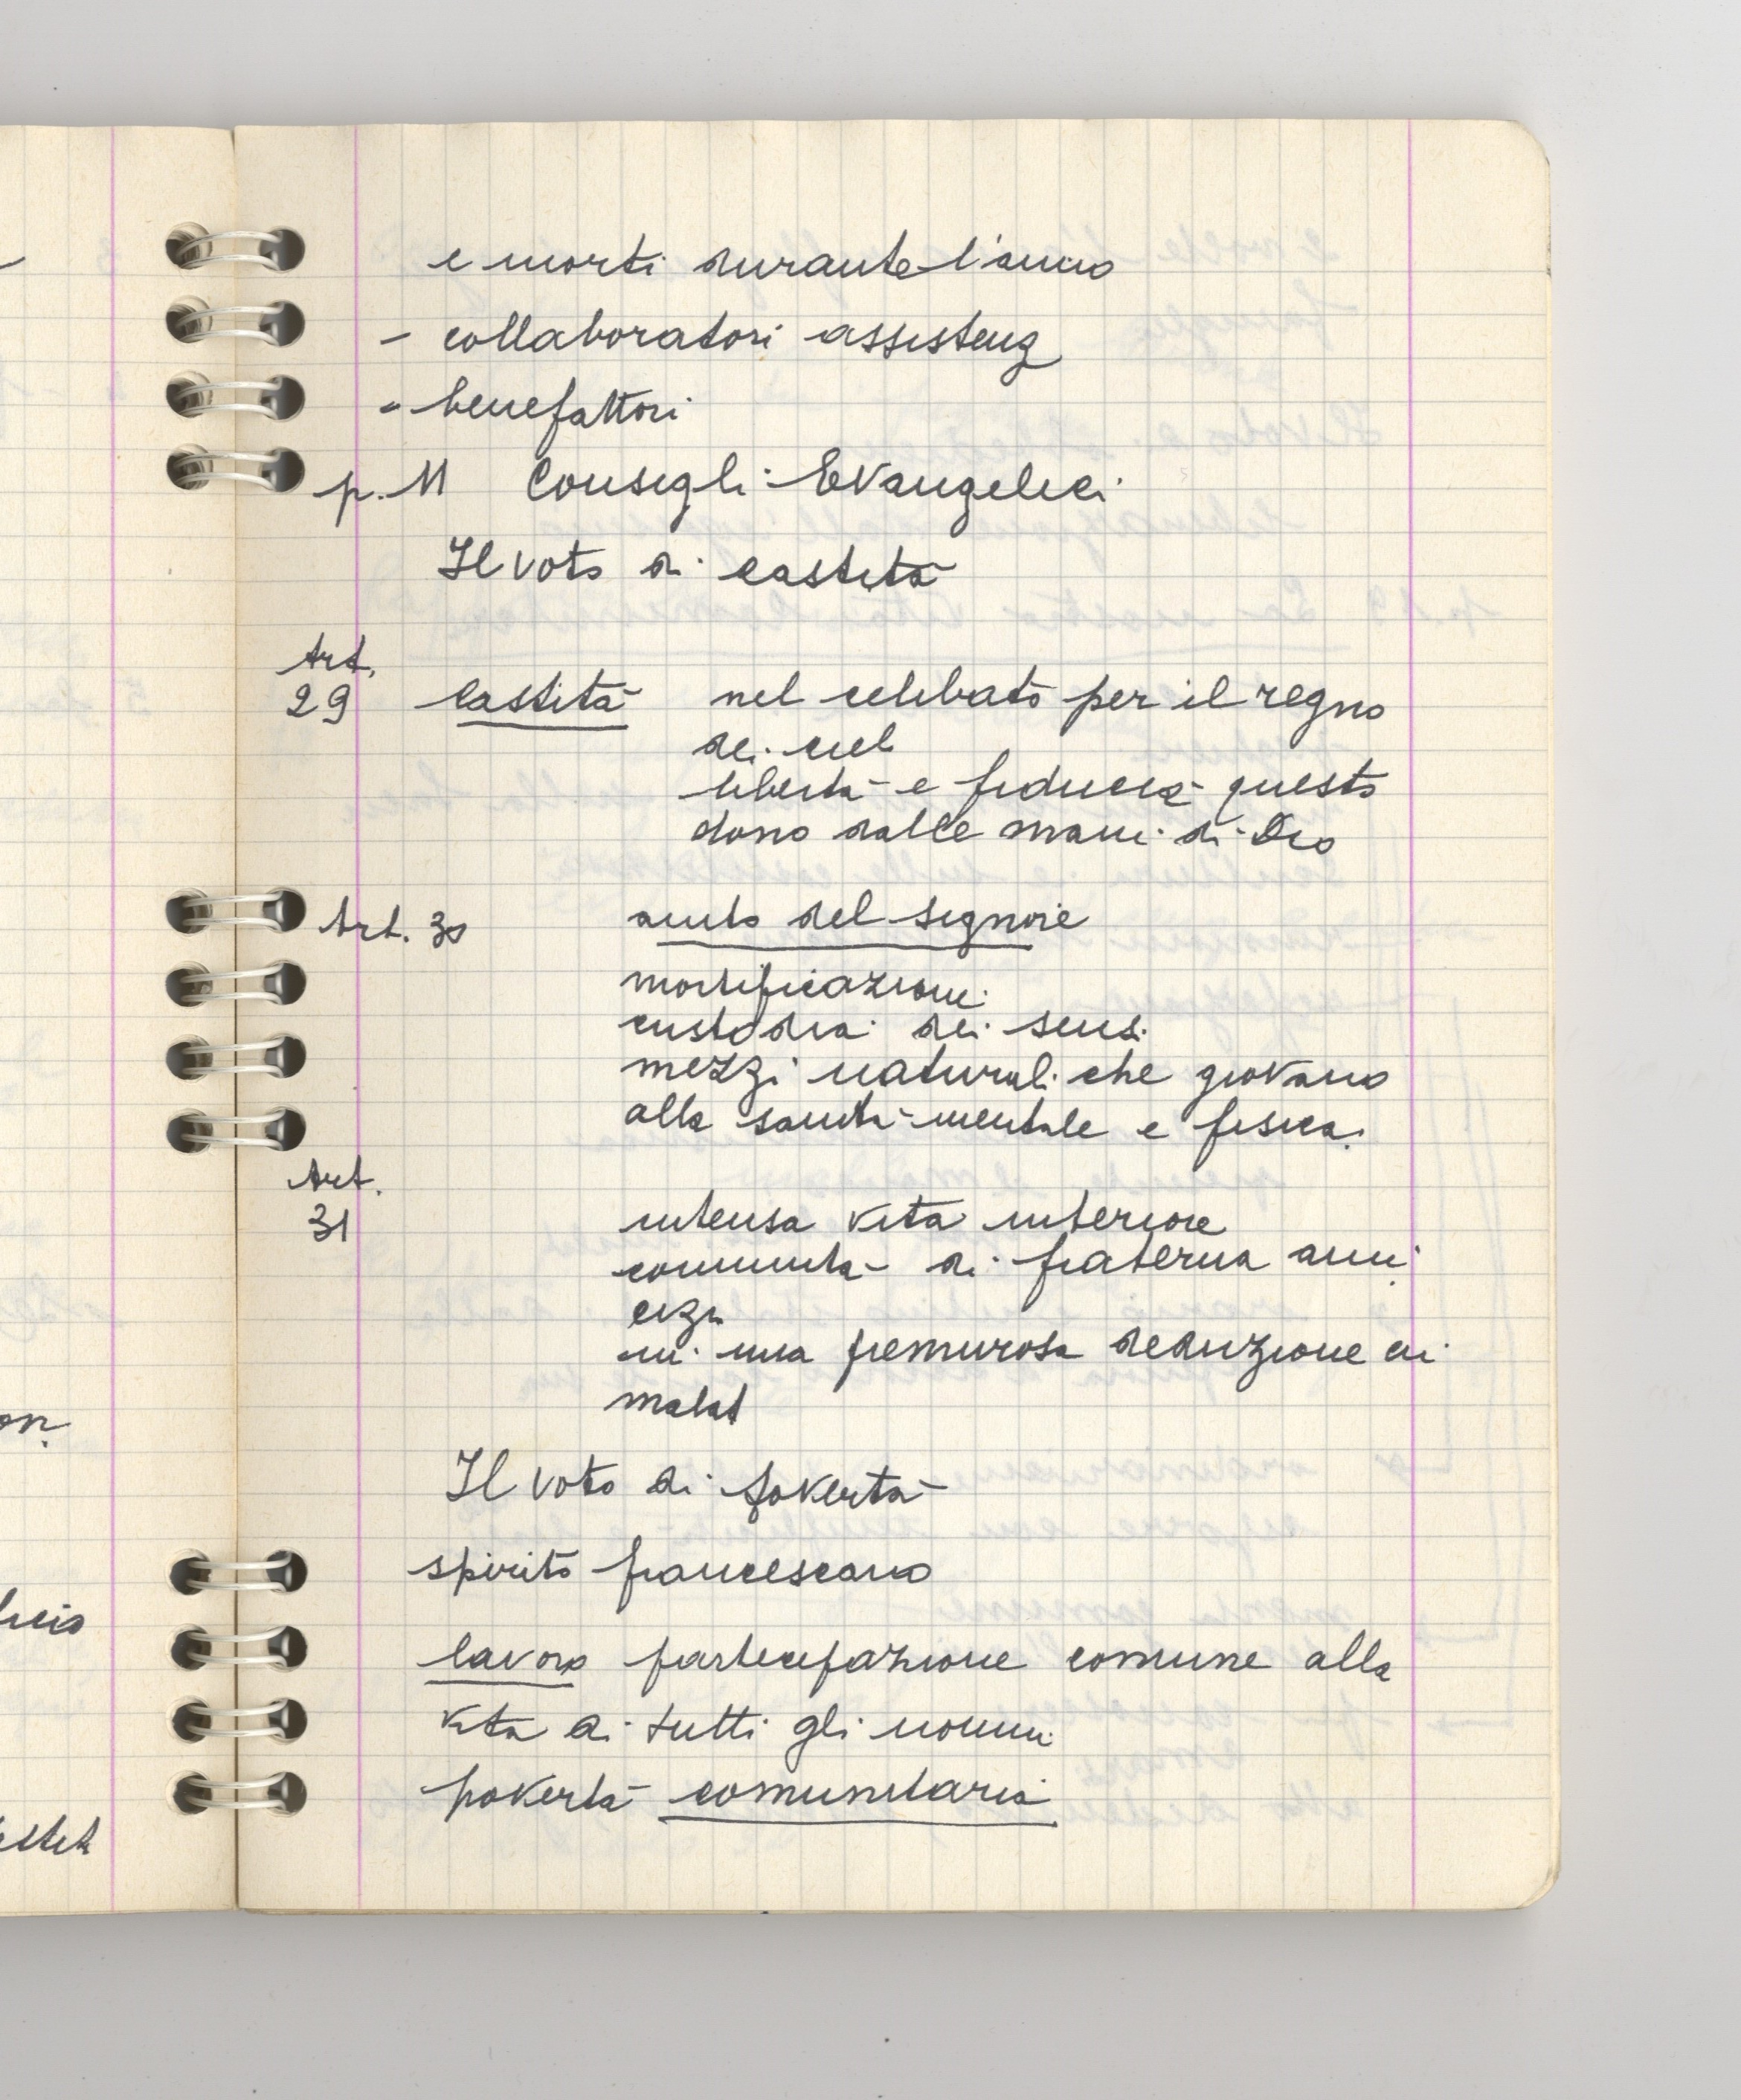 e morti durante l'anno
- collaboratori assistenz
- benefattori
p. 11 Consigli Evangelici
Il voto di castità
Art.
29 Castità nel celibato per il regno
dei cieli
libertà e fiducia questo
dono dalle mani di Dio
Art. 30 aiuto del Signore
mortificazione
custodia dei sensi
mezzi naturali che giovano
alla sanità mentale e fisica.
Art.
31 intensa vita interiore
comunità di fraterna ami
cizia
in una premurosa dedizione ai
malat
Il voto di povertà
spirito francescano
lavoro partecipazione comune alla
vita di tutti gli uomini
povertà comunitaria